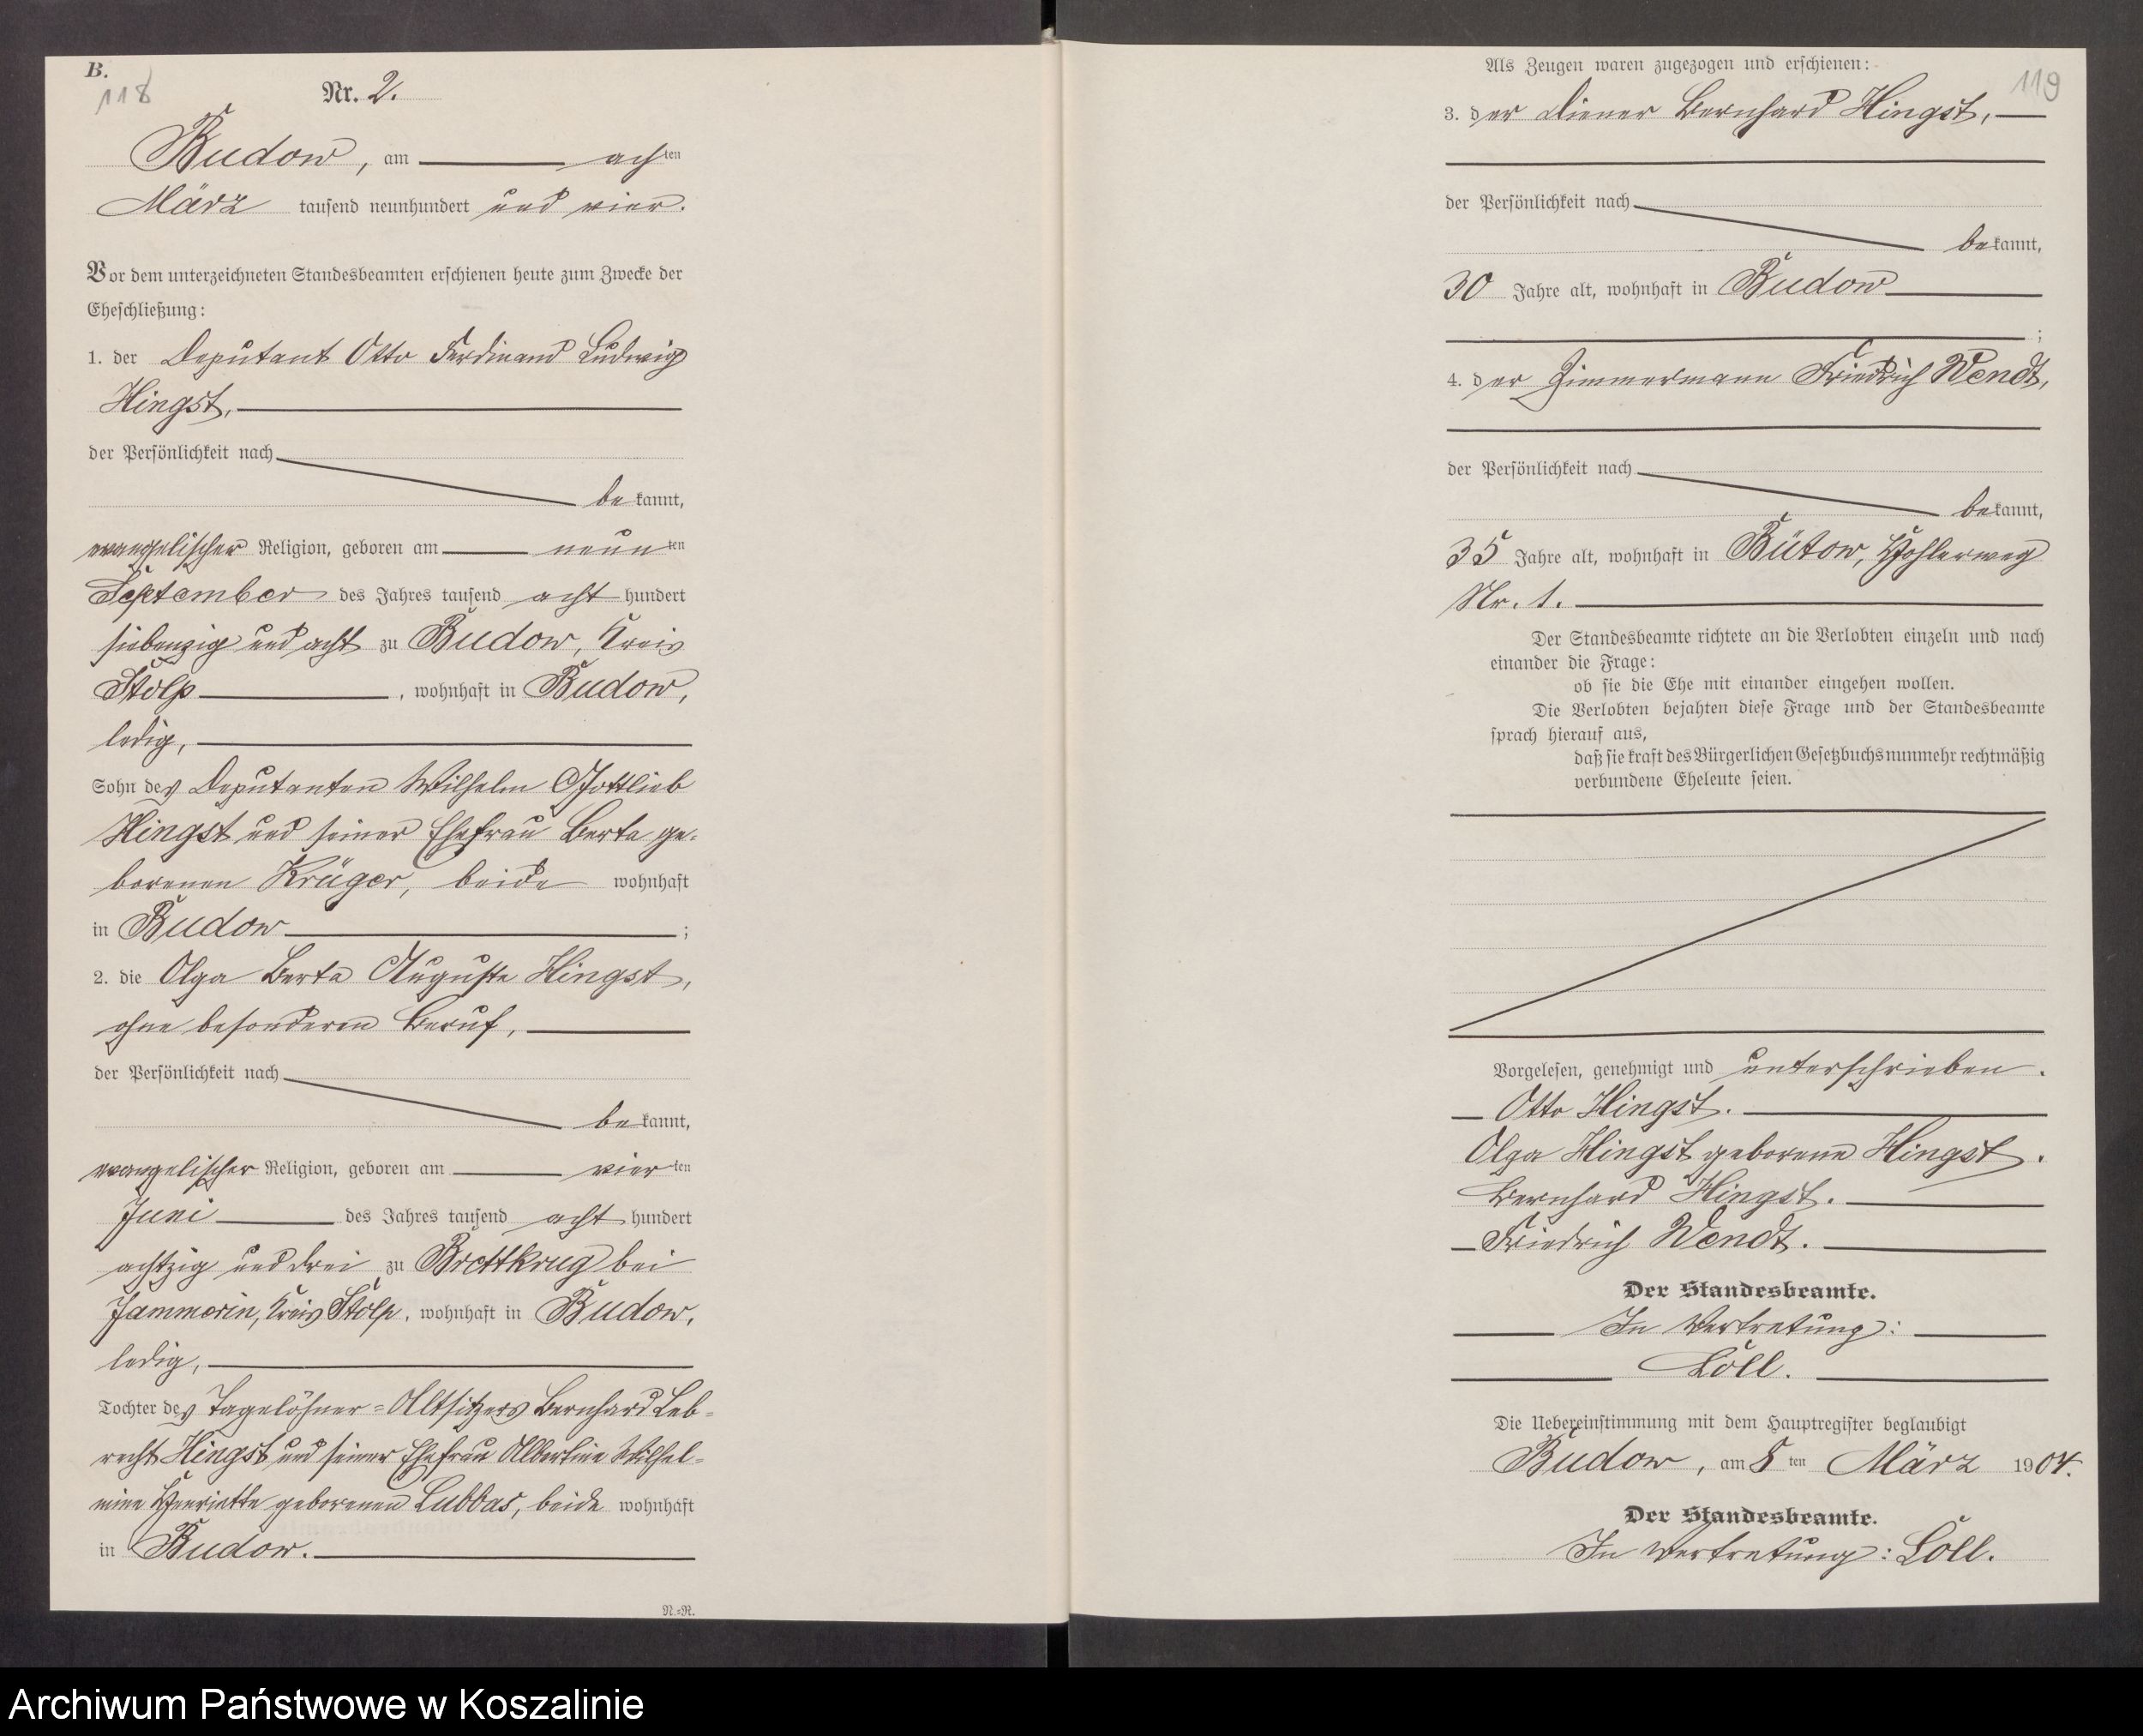 B.
118
Nr. 2.
Budow, am achten
März tausend neunhundert und vier.
Vor dem unterzeichneten Standesbeamten erschienen heute zum Zwecke der
Eheschließung:
1. der Deputant Otto Ferdinand Ludwig
Hingst,
der Persönlichkeit nach
bekannt,
evangelischer Religion, geboren am neunten
September des Jahres tausend acht hundert
siebenzig und acht zu Budow, Kreis
Stolp, wohnhaft in Budow,
ledig,
Sohn des Deputanten Wilhelm Gottlieb
Hingst und seiner Ehefrau Berta ge-
borenen Krüger, beide wohnhaft
in Budow;
2. die Olga Berta Auguste Hingst,
ohne besonderen Beruf,
der Persönlichkeit nach
bekannt,
evangelischer Religion, geboren am vierten
Juni des Jahres tausend acht hundert
achtzig und drei zu Brettkrug bei
Jammerin, Kreis Stolp, wohnhaft in Budow,
ledig,
Tochter des Tagelöhner-Altsitzers Bernhard Leb-
recht Hingst und seiner Ehefrau Albertine Wilhel-
mine Henriette geborenen Lubbas, beide wohnhaft
in Budow.
N.-N.
Als Zeugen waren zugezogen und erschienen:
119
3. der Diener Bernhard Hingst,
der Persönlichkeit nach
bekannt,
30 Jahre alt, wohnhaft in Budow
;
4. der Zimmermann Friedrich Wendt,
der Persönlichkeit nach
bekannt,
35 Jahre alt, wohnhaft in Bütow, Hohlerweg
Nr. 1.
Der Standesbeamte richtete an die Verlobten einzeln und nach
einander die Frage:
ob sie die Ehe mit einander eingehen wollen.
Die Verlobten bejahten diese Frage und der Standesbeamte
sprach hierauf aus,
daß sie kraft des Bürgerlichen Gesetzbuchs nunmehr rechtmäßig
verbundene Eheleute seien.
Vorgelesen, genehmigt und unterschrieben.
Otto Hingst.
Olga Hingst geborene Hingst.
Bernhard Hingst.
Friedrich Wendt.
Der Standesbeamte.
In Vertretung:
Löll.
Die Uebereinstimmung mit dem Hauptregister beglaubigt
Budow, am 8ten März 1904.
Der Standesbeamte.
In Vertretung: Löll.
Archiwum Państwowe w Koszalinie